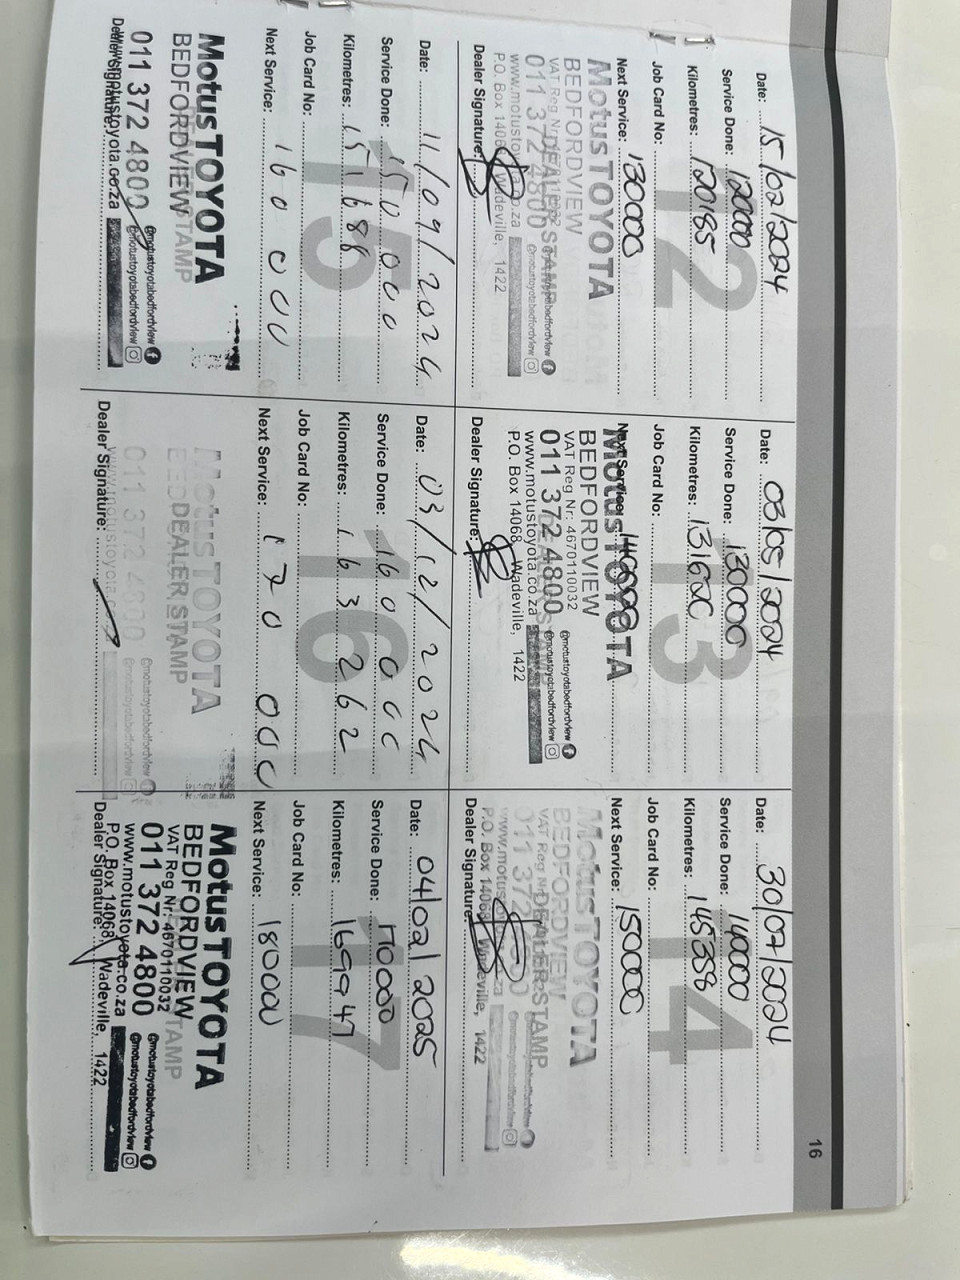 16
12
Date: 15/02/2024
Service Done: 120000
Kilometres: 120185
Job Card No:
Next Service: 130000
Motus TOYOTA
BEDFORDVIEW
DEALER STAMP
011 372 4800
@motustoyotabedfordview
Dealer Signature:
P.O. Box 14068, Wadeville, 1422
13
Date: 03/05/2024
Service Done: 130000
Kilometres:
Job Card No:
Next Service: 140000
Motus TOYOTA
BEDFORDVIEW
VAT Reg Nr: 4670110032
011 372 4800
@motustoyotabedfordview
www.motustoyota.co.za
P.O. Box 14068, Wadeville, 1422
Dealer Signature:
14
Date: 30/07/2024
Service Done: 140000
Kilometres: 145358
Job Card No:
Next Service: 150000
Motus TOYOTA
BEDFORDVIEW
DEALER STAMP
@motustoyotabedfordview
P.O. Box 14068, Wadeville, 1422
Dealer Signature:
15
Date: 11/09/2024
Service Done: 150000
Kilometres: 151688
Job Card No:
Next Service: 160000
Motus TOYOTA
BEDFORDVIEW
STAMP
011 372 4800
@motustoyotabedfordview
www.motustoyota.co.za
Dealer Signature:
16
Date: 03/12/2024
Service Done: 160000
Kilometres: 163262
Job Card No:
Next Service: 170000
Motus TOYOTA
DEALER STAMP
011 372 4800
@motustoyotabedfordview
Dealer Signature:
17
Date: 04/02/2025
Service Done: 170000
Kilometres: 169947
Job Card No:
Next Service: 180000
Motus TOYOTA
BEDFORDVIEW
STAMP
VAT Reg Nr: 4670110032
011 372 4800
@motustoyotabedfordview
www.motustoyota.co.za
P.O. Box 14068, Wadeville, 1422
Dealer Signature: